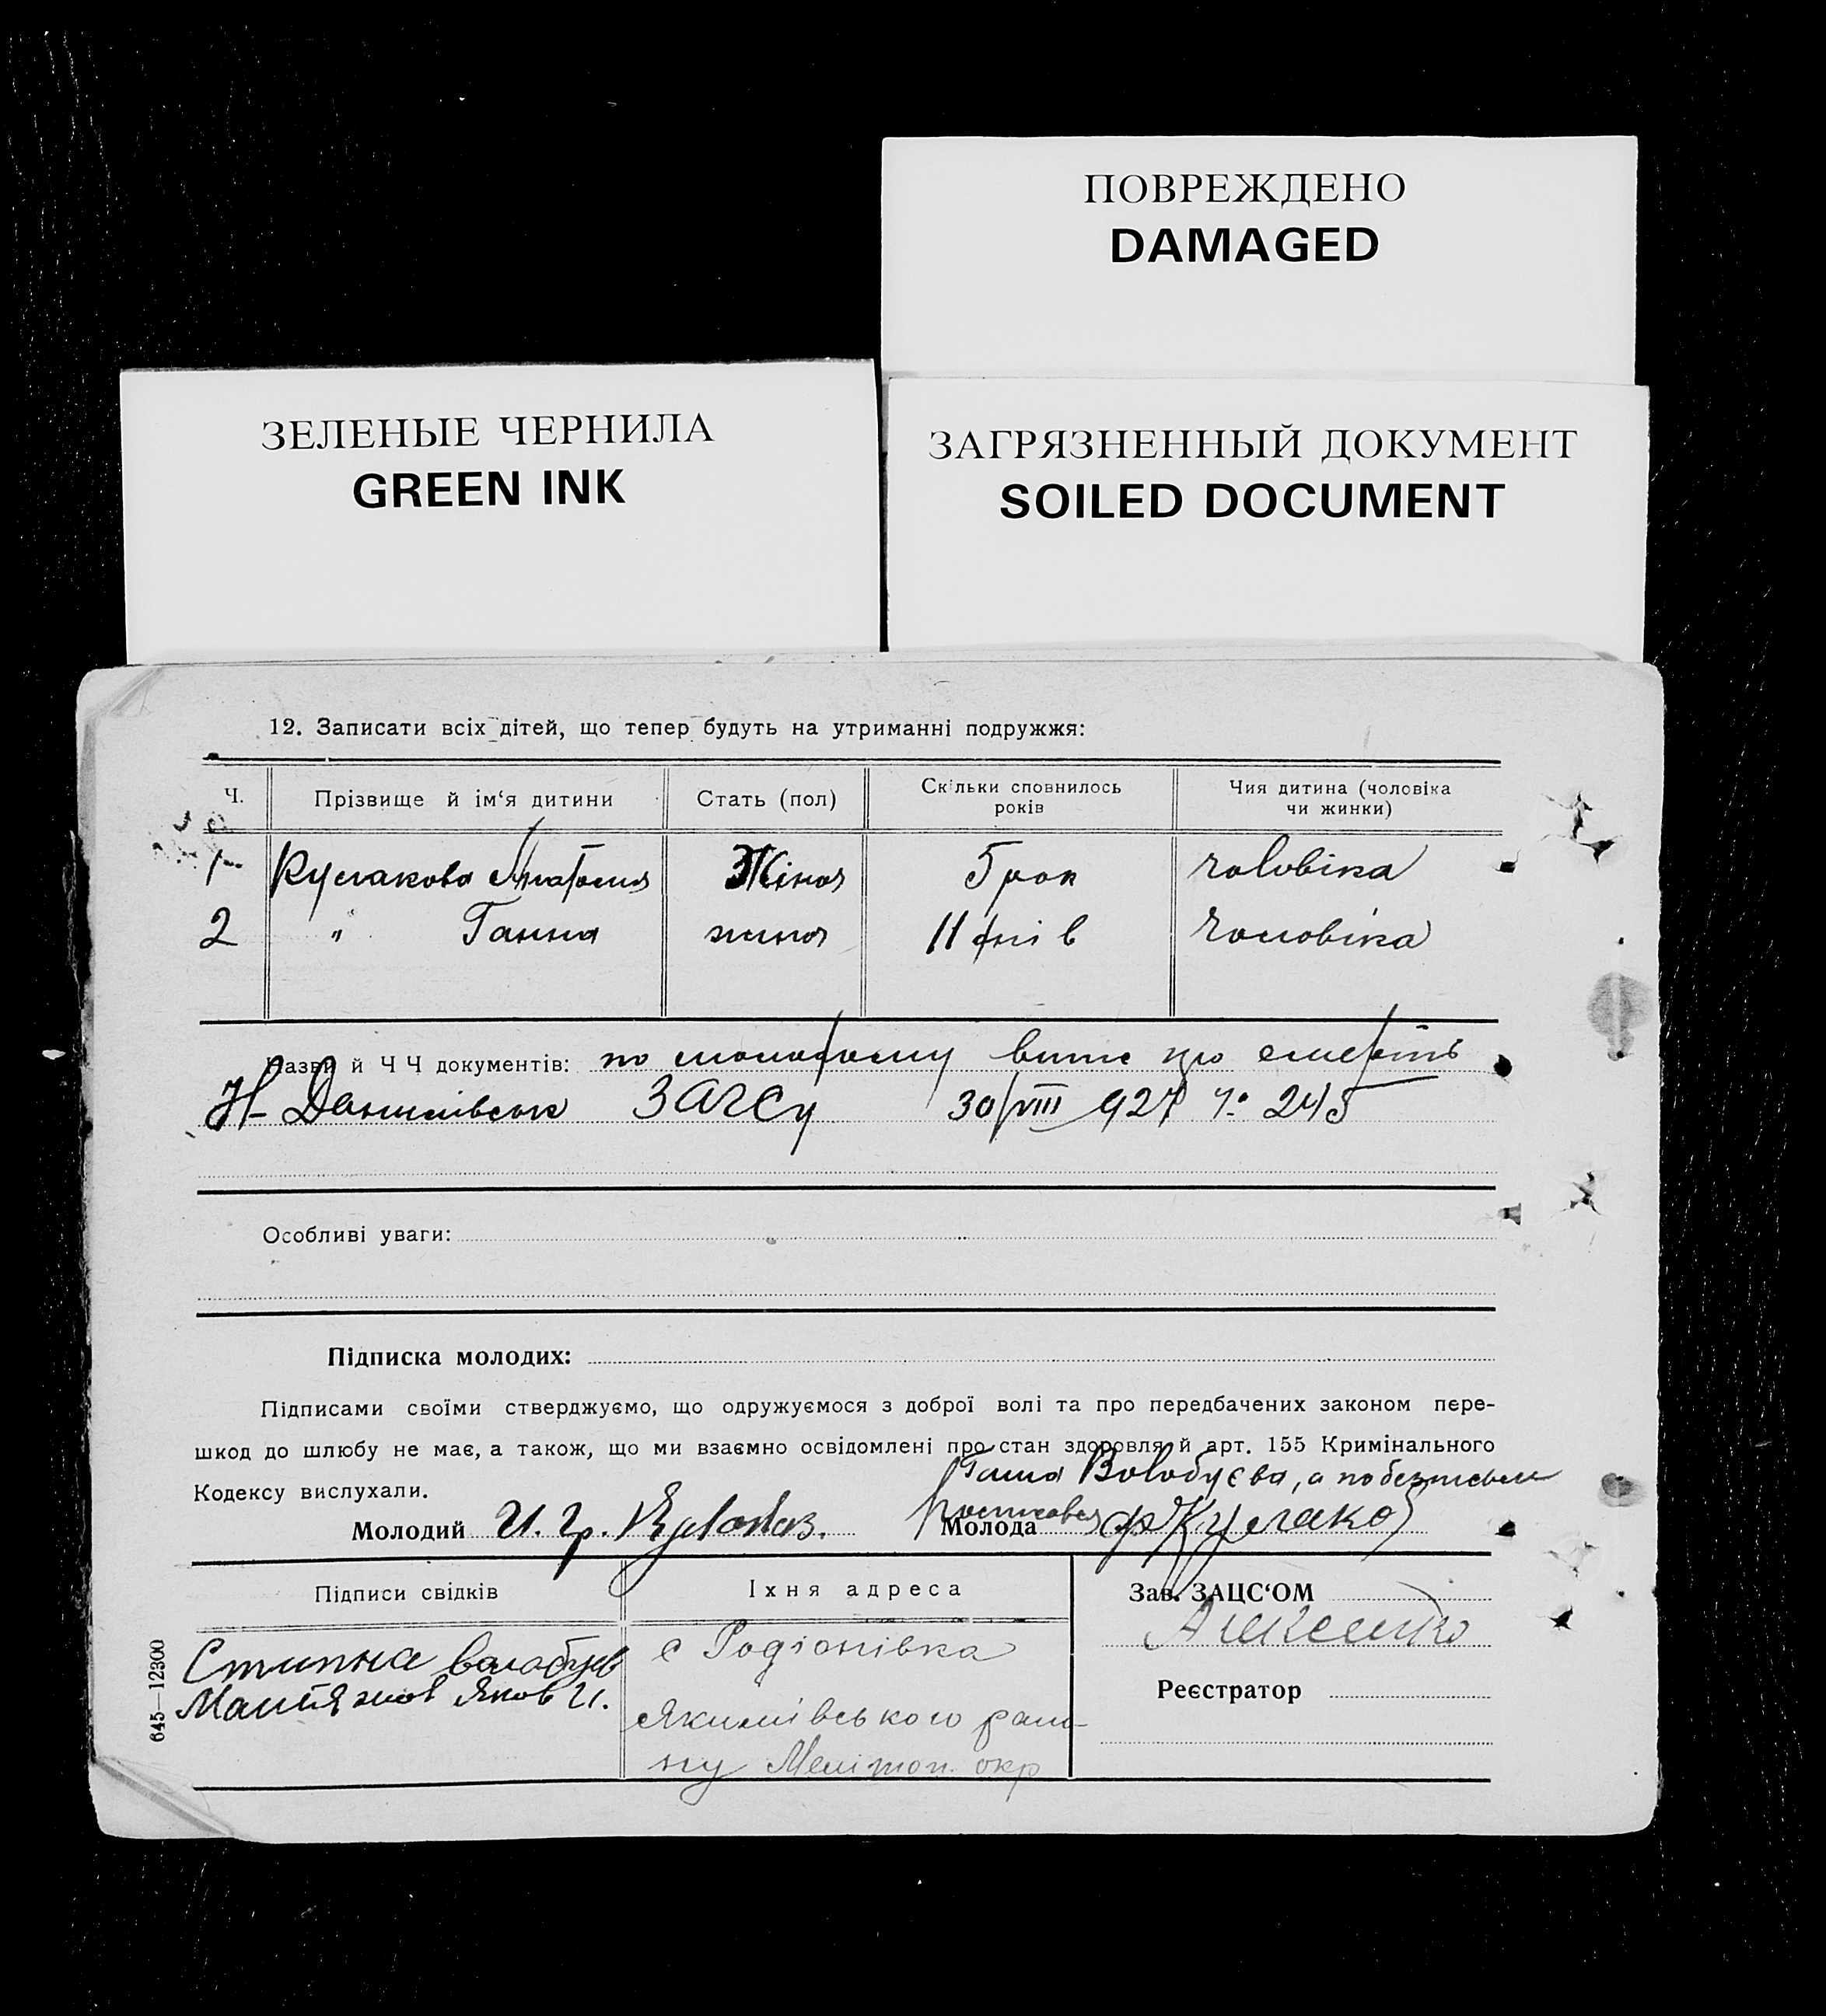 ПОВРЕЖДЕНО
DAMAGED
ЗЕЛЕНЫЕ ЧЕРНИЛА
GREEN INK
ЗАГРЯЗНЕННЫЙ ДОКУМЕНТ
SOILED DOCUMENT
12. Записати всіх дітей, що тепер будуть на утриманні подружжя:
Ч. Прізвище й ім‘я дитини Стать (пол) Скільки сповнилось років Чия дитина (чоловіка чи жинки)
1 Кулакова Жіноч 5 рок чоловіка
2 " Ганна жиноч 11 днів чоловіка
Назви й Ч Ч документів: по молодому витяг про смерть
Н-Данилівськ ЗАГСу 30/VIII 927 № 245
Особливі уваги:
Підписка молодих:
Підписами своїми стверджуємо, що одружуємося з доброї волі та про передбачених законом пере-
шкод до шлюбу не має, а також, що ми взаємно освідомлені про стан здоровля й арт. 155 Кримінального
Кодексу вислухали.
Волобуєва, а по безписьм
Молодий И. Гр. Молода Кулаков
Підписи свідків Їхня адреса Зав. ЗАЦС‘ОМ
с Родіонівка
Яков И.
Якимівського райо-
ну Мелітоп. окр
Реєстратор
645—12300